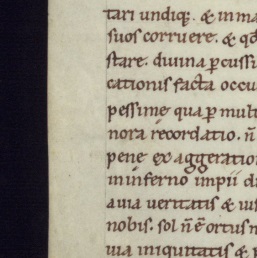 tari undiq;. & in ma
suos corruere. & qđ
stare. diuina ꝑcussi
cationis facta occu
pessime qua ꝑ mult
nora recordatio. ñ
pene exaggeratio
in inferno impii di
a uia ueritatis & ius
nobis. sol ñ ē ortus n
uia iniquitatis & p